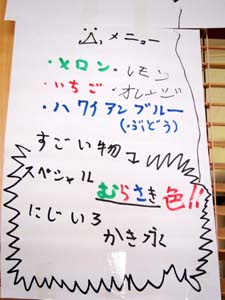 メニュー
・メロン・レモン
・いちご・オレンジ
・ハワイアンブルー
(ぶどう)
すごい物コ
スペシャル
むらさき色!!
にじいろ
かき氷